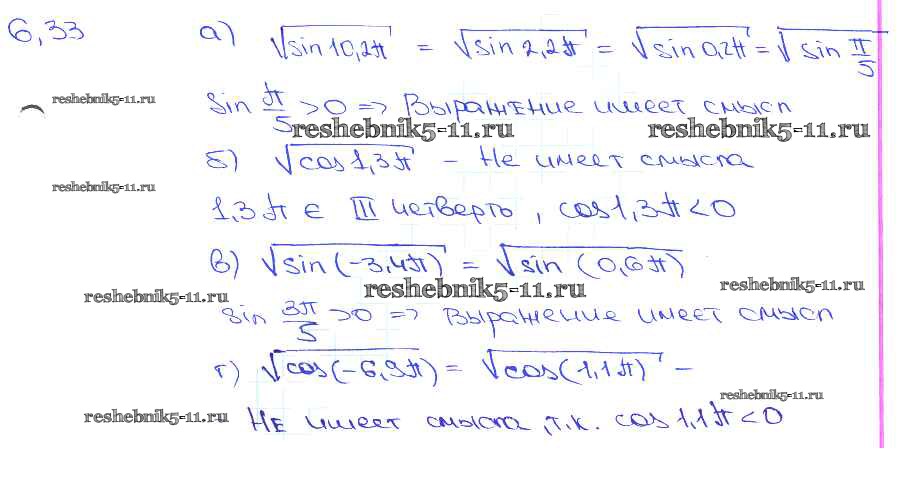 6,33 а) √sin 10,2π = √sin 2,2π = √sin 0,2π = √sin π/5
reshebnik5-11.ru
sin π/5 >0 => Выражение имеет смысл
reshebnik5-11.ru reshebnik5-11.ru
б) √cos 1,3π - Не имеет смысла
reshebnik5-11.ru
1,3π ∈ III четверть, cos 1,3π < 0
в) √sin (-3,4π) = √sin (0,6π)
reshebnik5-11.ru reshebnik5-11.ru reshebnik5-11.ru
sin 3π/5 >0 => Выражение имеет смысл
г) √cos(-6,9π) = √cos(1,1π) -
reshebnik5-11.ru
reshebnik5-11.ru
Не имеет смысла, т.к. cos 1,1π < 0